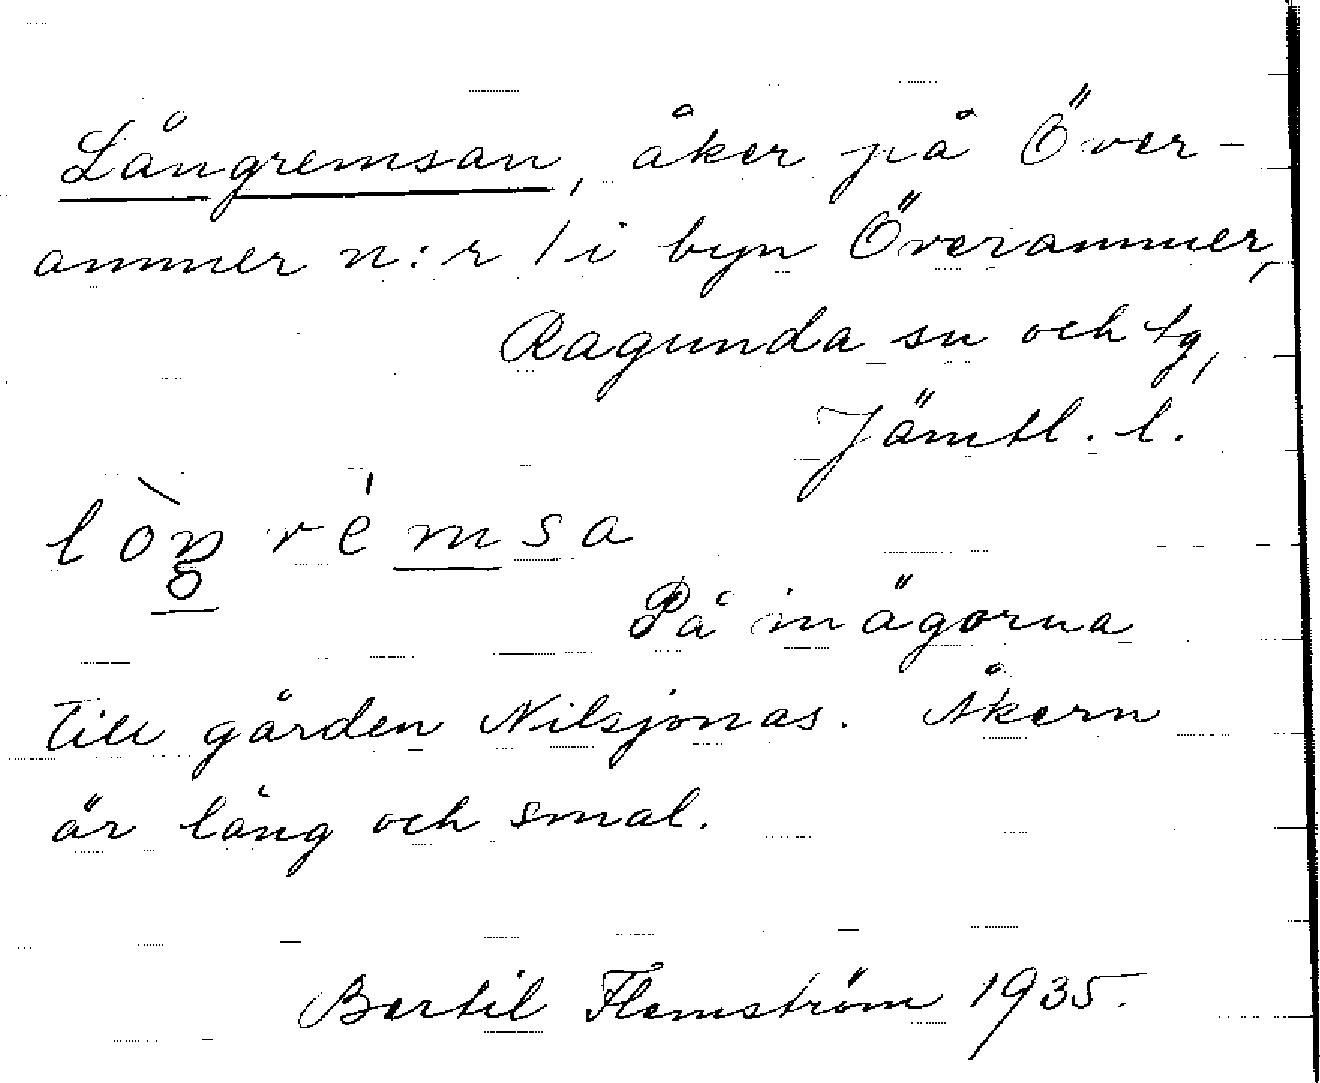 Långremsan, åker på Över-
ammer n:r 1 i byn Överammer,
Ragunda sn och tg,
Jämtl. l.
lòŋrémsa
På inägorna
till gården Nilsjonas. Åkern
är lång och smal.
Bertil Flemström 1935.